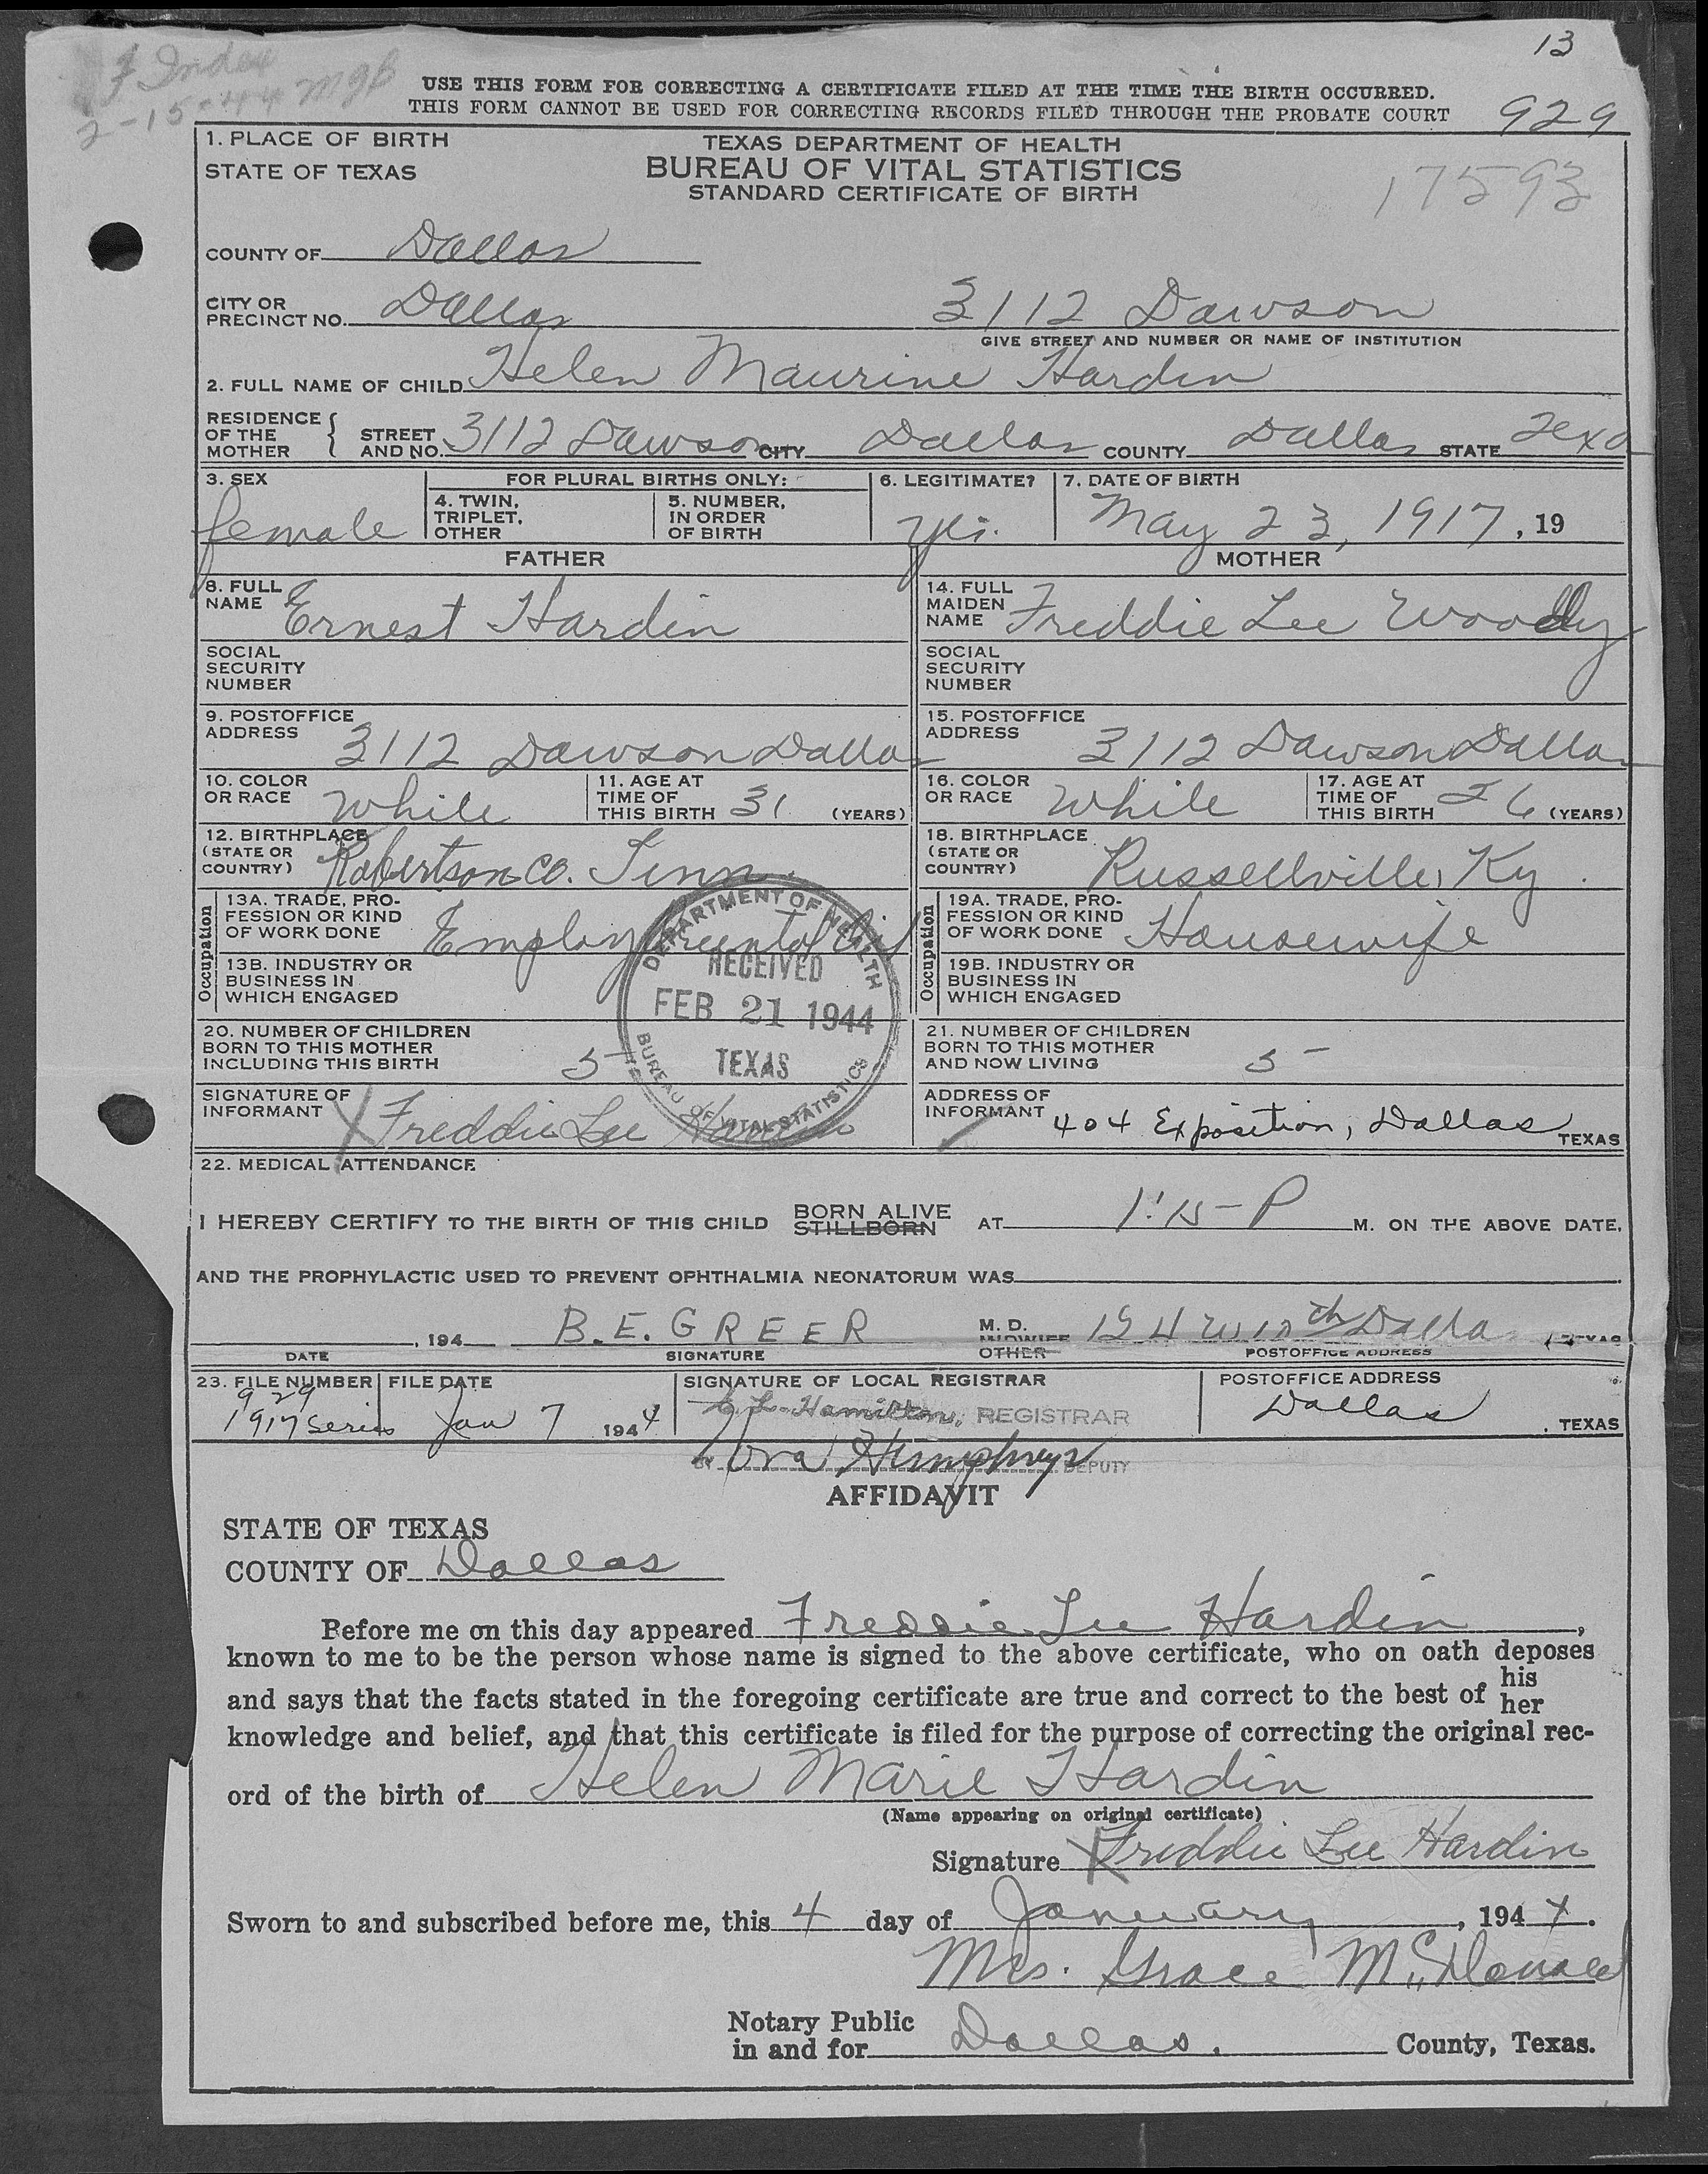 13
Index
2-15-44 mgb
USE THIS FORM FOR CORRECTING A CERTIFICATE FILED AT THE TIME THE BIRTH OCCURRED.
THIS FORM CANNOT BE USED FOR CORRECTING RECORDS FILED THROUGH THE PROBATE COURT
929
1. PLACE OF BIRTH
STATE OF TEXAS
TEXAS DEPARTMENT OF HEALTH
BUREAU OF VITAL STATISTICS
STANDARD CERTIFICATE OF BIRTH
17593
COUNTY OF Dallas
CITY OR PRECINCT NO. Dallas 3112 Dawson
GIVE STREET AND NUMBER OR NAME OF INSTITUTION
2. FULL NAME OF CHILD Helen Maurine Hardin
RESIDENCE OF THE MOTHER { STREET AND NO. 3112 Dawson CITY Dallas COUNTY Dallas STATE Texa
3. SEX female
FOR PLURAL BIRTHS ONLY:
4. TWIN, TRIPLET, OTHER
5. NUMBER, IN ORDER OF BIRTH
6. LEGITIMATE? yes.
7. DATE OF BIRTH May 23, 1917, 19
FATHER
MOTHER
8. FULL NAME Ernest Hardin
14. FULL MAIDEN NAME Freddie Lee Woodly
SOCIAL SECURITY NUMBER
SOCIAL SECURITY NUMBER
9. POSTOFFICE ADDRESS 3112 Dawson Dallas
15. POSTOFFICE ADDRESS 3112 Dawson Dallas
10. COLOR OR RACE White
11. AGE AT TIME OF THIS BIRTH 31 (YEARS)
16. COLOR OR RACE White
17. AGE AT TIME OF THIS BIRTH 26 (YEARS)
12. BIRTHPLACE (STATE OR COUNTRY) Robertson Co. Tenn.
18. BIRTHPLACE (STATE OR COUNTRY) Russellville, Ky.
Occupation
13A. TRADE, PROFESSION OR KIND OF WORK DONE Employ Oriental Oil
13B. INDUSTRY OR BUSINESS IN WHICH ENGAGED
Occupation
19A. TRADE, PROFESSION OR KIND OF WORK DONE Housewife
19B. INDUSTRY OR BUSINESS IN WHICH ENGAGED
DEPARTMENT OF HEALTH
RECEIVED
FEB 21 1944
TEXAS
BUREAU OF VITAL STATISTICS
20. NUMBER OF CHILDREN BORN TO THIS MOTHER INCLUDING THIS BIRTH 5
21. NUMBER OF CHILDREN BORN TO THIS MOTHER AND NOW LIVING 5
SIGNATURE OF INFORMANT X Freddie Lee Hardin
ADDRESS OF INFORMANT 404 Exposition, Dallas TEXAS
22. MEDICAL ATTENDANCE
I HEREBY CERTIFY TO THE BIRTH OF THIS CHILD BORN ALIVE STILLBORN AT 1:15 - P M. ON THE ABOVE DATE,
AND THE PROPHYLACTIC USED TO PREVENT OPHTHALMIA NEONATORUM WAS
, 194 B.E. GREER M. D. MIDWIFE OTHER W 12th Dallas TEXAS
DATE SIGNATURE POSTOFFICE ADDRESS
23. FILE NUMBER 929 1917 series
FILE DATE Jan 7 1944
SIGNATURE OF LOCAL REGISTRAR
Hamilton, REGISTRAR
BY Ora Humphreys DEPUTY
POSTOFFICE ADDRESS Dallas, TEXAS
AFFIDAVIT
STATE OF TEXAS
COUNTY OF Dallas
Before me on this day appeared Freddie Lee Hardin,
known to me to be the person whose name is signed to the above certificate, who on oath deposes
and says that the facts stated in the foregoing certificate are true and correct to the best of his her
knowledge and belief, and that this certificate is filed for the purpose of correcting the original rec-
ord of the birth of Helen Marie Hardin
(Name appearing on original certificate)
Signature X Freddie Lee Hardin
Sworn to and subscribed before me, this 4 day of January, 1944.
Mrs. Grace McDonald
Notary Public in and for Dallas. County, Texas.